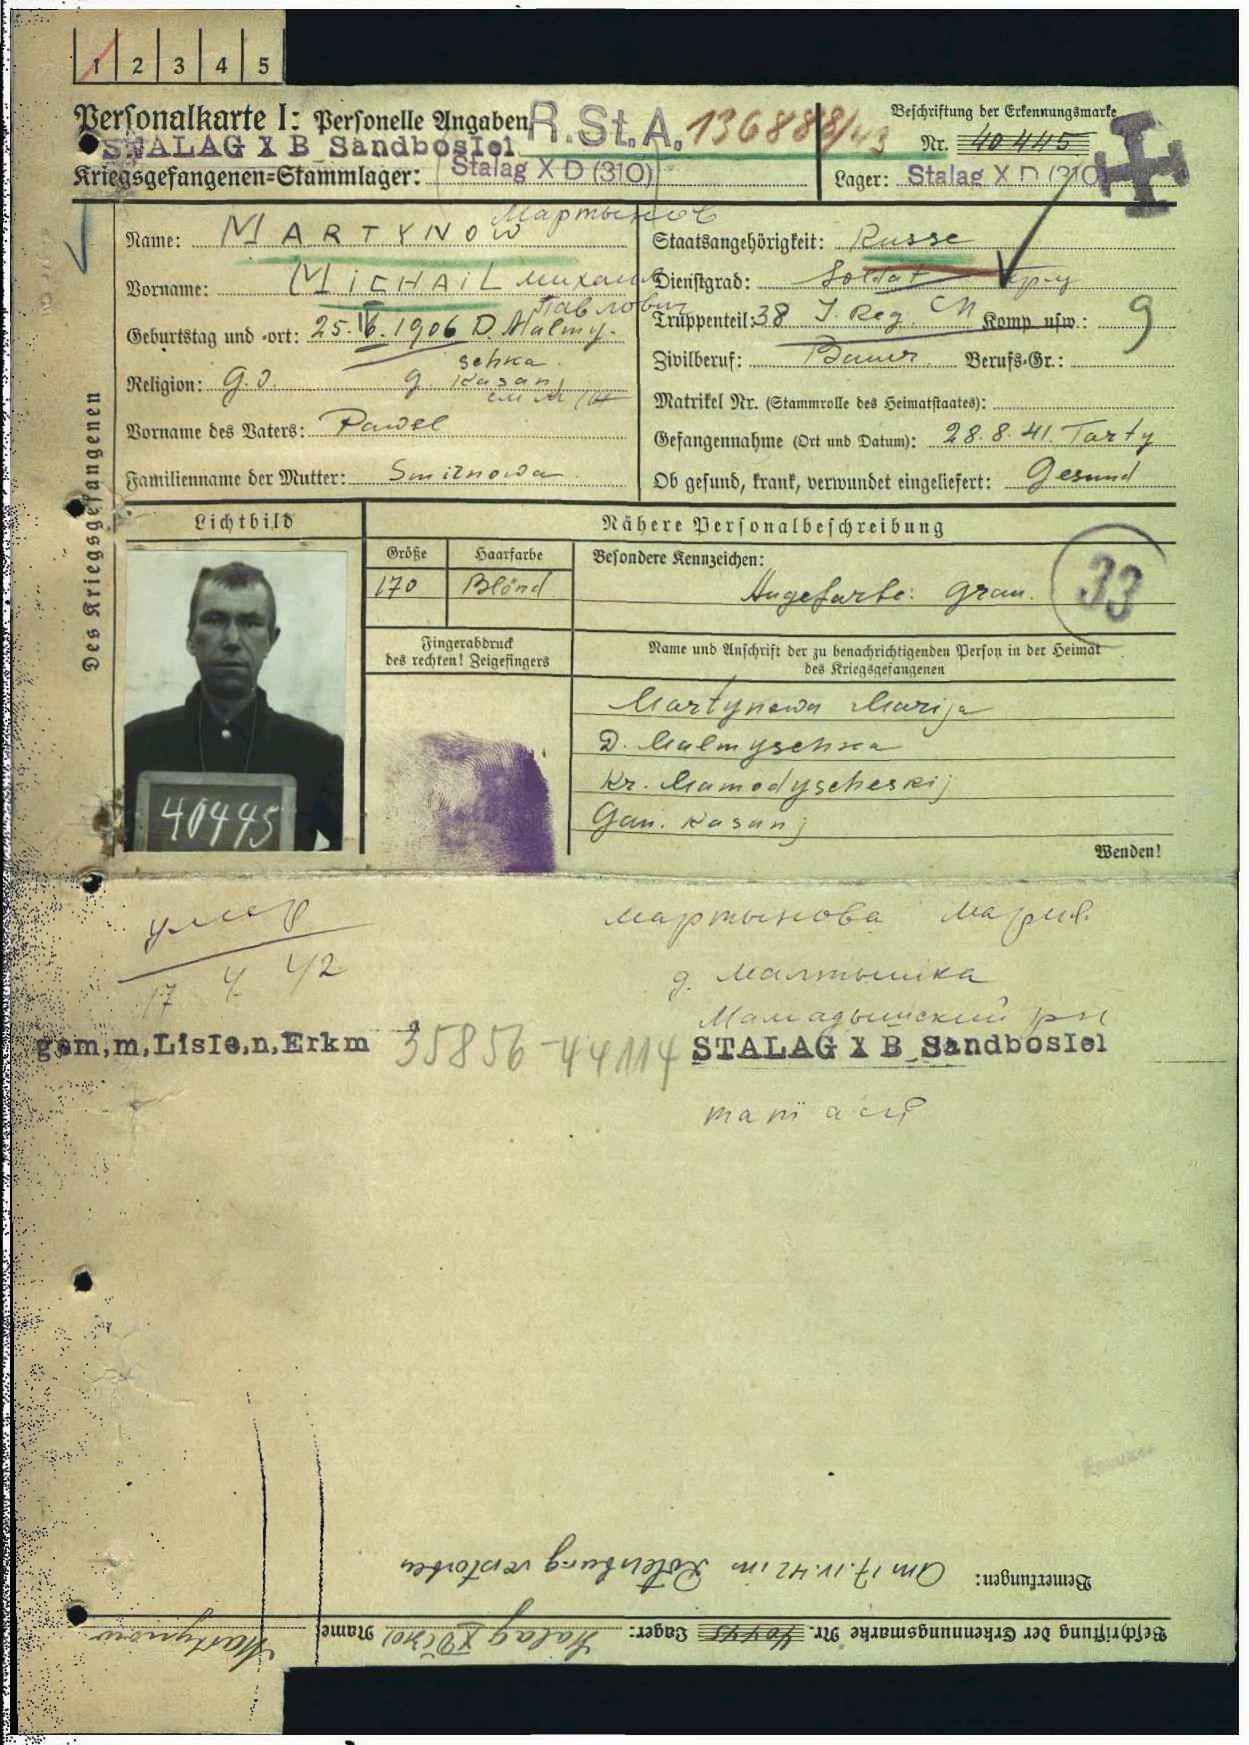 1 2 3 4 5
Personalkarte I: Personelle Angaben
R.St.A. 136888/43
Beschriftung der Erkennungsmarke
STALAG X B Sandbostel
Nr. 40445
Kriegsgefangenen=Stammlager: Stalag X D (310)
Lager: Stalag X D (310)
Des Kriegsgefangenen
Мартынов
Name: MARTYNOW
Vorname: MICHAIL Михаил
Павлович
Geburtstag und =ort: 25. IV. 1906 D. Malmy-
schka
Religion: g. o. g. Kasanj
Vorname des Vaters: Pawel
Familienname der Mutter: Smirnowa
Staatsangehörigkeit: Russe
Dienstgrad: Soldat
Truppenteil: 38 J. Reg. Komp usw.: 9
Zivilberuf: Bauer Berufs=Gr.:
Matrikel Nr. (Stammrolle des Heimatstaates):
Gefangennahme (Ort und Datum): 28. 8. 41. Tarty
Ob gesund, krank, verwundet eingeliefert: Gesund
Lichtbild
Nähere Personalbeschreibung
Größe
Haarfarbe
170
Blond
Besondere Kennzeichen:
Augefarbe: Grau.
33
40445
Fingerabdruck
des rechten! Zeigefingers
Name und Anschrift der zu benachrichtigenden Person in der Heimat
des Kriegsgefangenen
Martynowa Marija
D. Malmyschka
Kr. Mamodyscheskij
Gou. Kasanj
Wenden!
умер
17 4. 42
Мартынова Мария
д. Малтышка
Мамадышский рн
gem,m,Liste,n,Erkm 35856-44114
STALAG X B Sandbostel
Bemerkungen: Am 17. IV. 42 im Rotenburg verstorben
Beschriftung der Erkennungsmarke Nr. 40445 Lager: Stalag XD (310) Name: Martynow